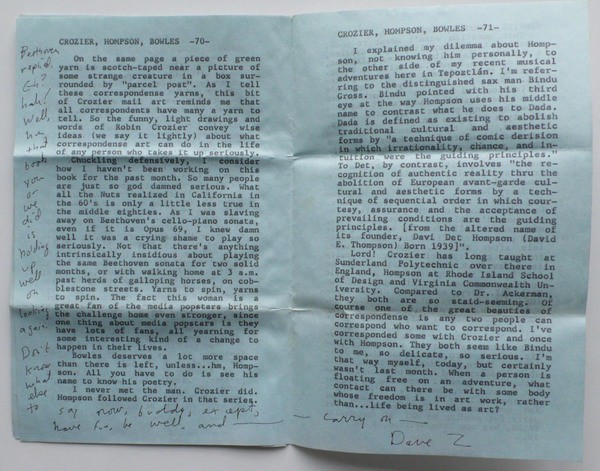 CROZIER, HOMPSON, BOWLES -70-
On the same page a piece of green
yarn is scotch-taped near a picture of
some strange creature in a box sur-
rounded by "parcel post". As I tell
these correspondense yarns, this bit
of Crozier mail art reminds me that
all correspondents have many a yarn to
tell. So the funny, light drawings and
words of Robin Crozier convey wise
ideas (we say it lightly) about what
correspondense art can do in the life
of any person who takes it up seriously.
Chuckling defensively, I consider
how I haven't been working on this
book for the past month. So many people
are just so god damned serious. What
all the Nuts realized in California in
the 60's is only a little less true in
the middle eighties. As I was slaving
away on Beethoven's cello-piano sonata,
even if it is Opus 69, I knew damn
well it was a crying shame to play so
seriously. Not that there's anything
intrinsically insidious about playing
the same Beethoven sonata for two solid
months, or with walking home at 3 a.m.
past herds of galloping horses, on cob-
blestone streets. Yarns to spin, yarns
to spin. The fact this woman is a
great fan of the media popstars brings
the challenge home even stronger, since
one thing about media popstars is they
have lots of fans, all yearning for
some interesting kind of a change to
happen in their lives.
Bowles deserves a lot more space
than there is left, unless...hm, Homp-
son. All you have to do is see his
name to know his poetry.
I never met the man. Crozier did.
Hompson followed Crozier in that series.
Beethoven
hah!
Well,
that
book
you
or
we
did
is
holding
up
well
on
looking
again.
Don't
know
what
else
to
say now, buddy, except,
have fun, be well, and
CROZIER, HOMPSON, BOWLES -71-
I explained my dilemma about Homp-
son, not knowing him personally, to
the other side of my recent musical
adventures here in Tepoztlán. I'm refer-
ring to the distinguished sax man Bindu
Gross. Bindu pointed with his third
eye at the way Hompson uses his middle
name to contrast what he does to Dada.
Dada is defined as existing to abolish
traditional cultural and aesthetic
forms by "a technique of comic derision
in which irrationality, chance, and in-
tuition were the guiding principles."
To Det, by contrast, involves "the re-
cognition of authentic reality thru the
abolition of European avant-garde cul-
tural and aesthetic forms by a tech-
nique of sequential order in which cour-
tesy, assurance and the acceptance of
prevailing conditions are the guiding
principles. [from the altered name of
its founder, Davi Det Hompson (David
E. Thompson) Born 1939]".
Lord! Crozier has long taught at
Sunderland Polytechnic over there in
England, Hompson at Rhode Island School
of Design and Virginia Commonwealth Un-
iversity. Compared to Dr. Ackerman,
they both are so staid-seeming. Of
course one of the great beauties of
correspondense is any two people can
correspond who want to correspond. I've
corresponded some with Crozier and once
with Hompson. They both seem like Bindu
to me, so delicate, so serious. I'm
that way myself, today, but certainly
wasn't last month. When a person is
floating free on an adventure, what
contact can there be with some body
whose freedom is in art work, rather
than...life being lived as art?
carry on
Dave Z